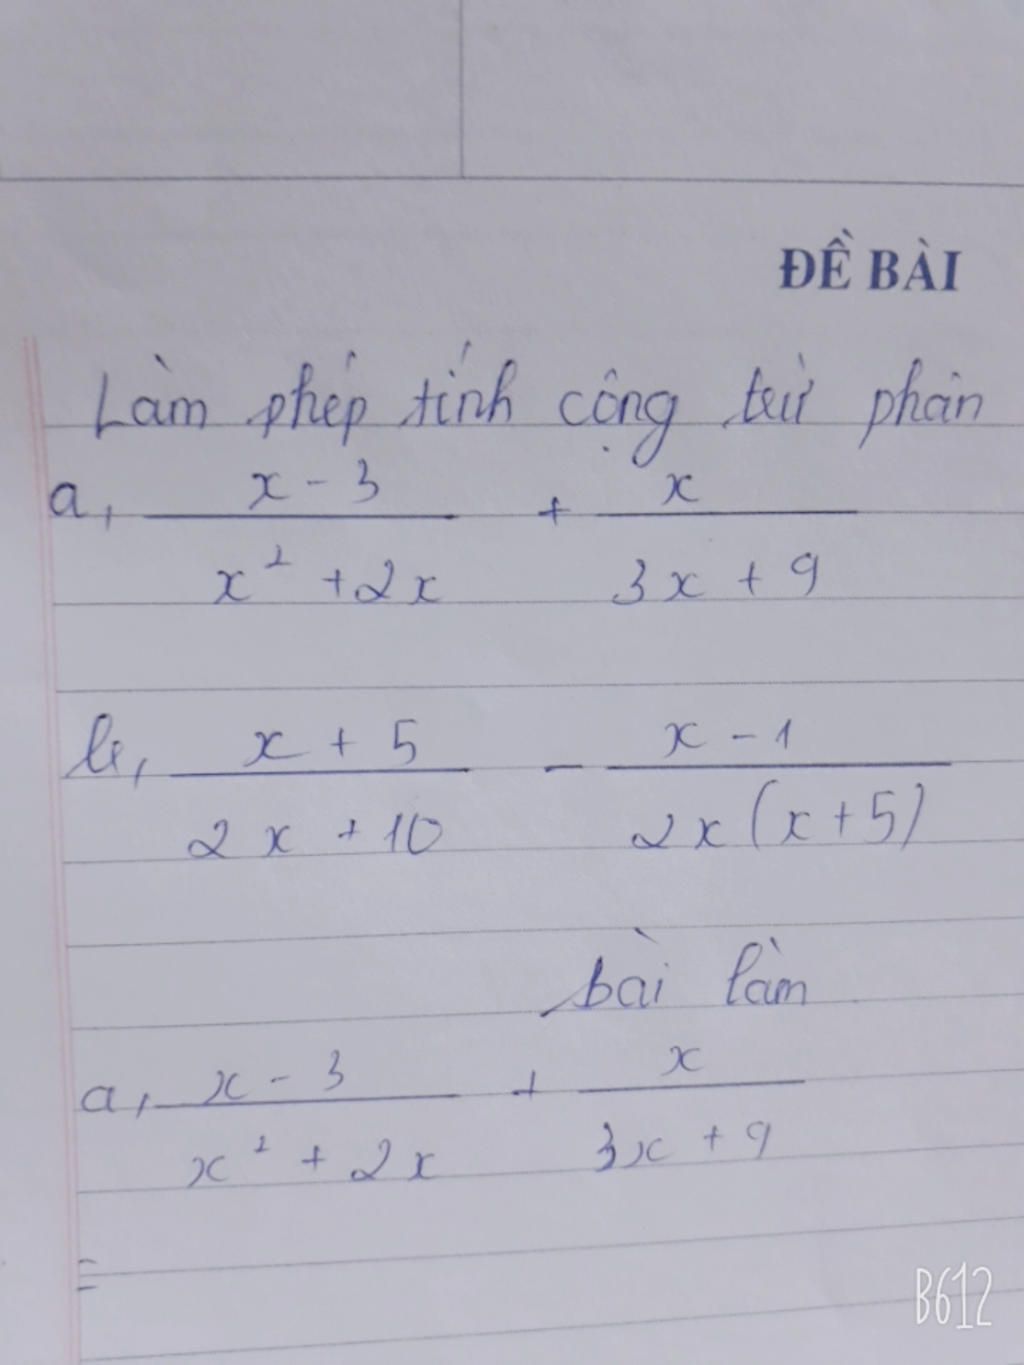 ĐỀ BÀI
Làm phép tính cộng trừ phân
a, x - 3 / x² + 2x + x / 3x + 9
b, x + 5 / 2x + 10 - x - 1 / 2x(x + 5)
bài làm
a, x - 3 / x² + 2x + x / 3x + 9
=
B612